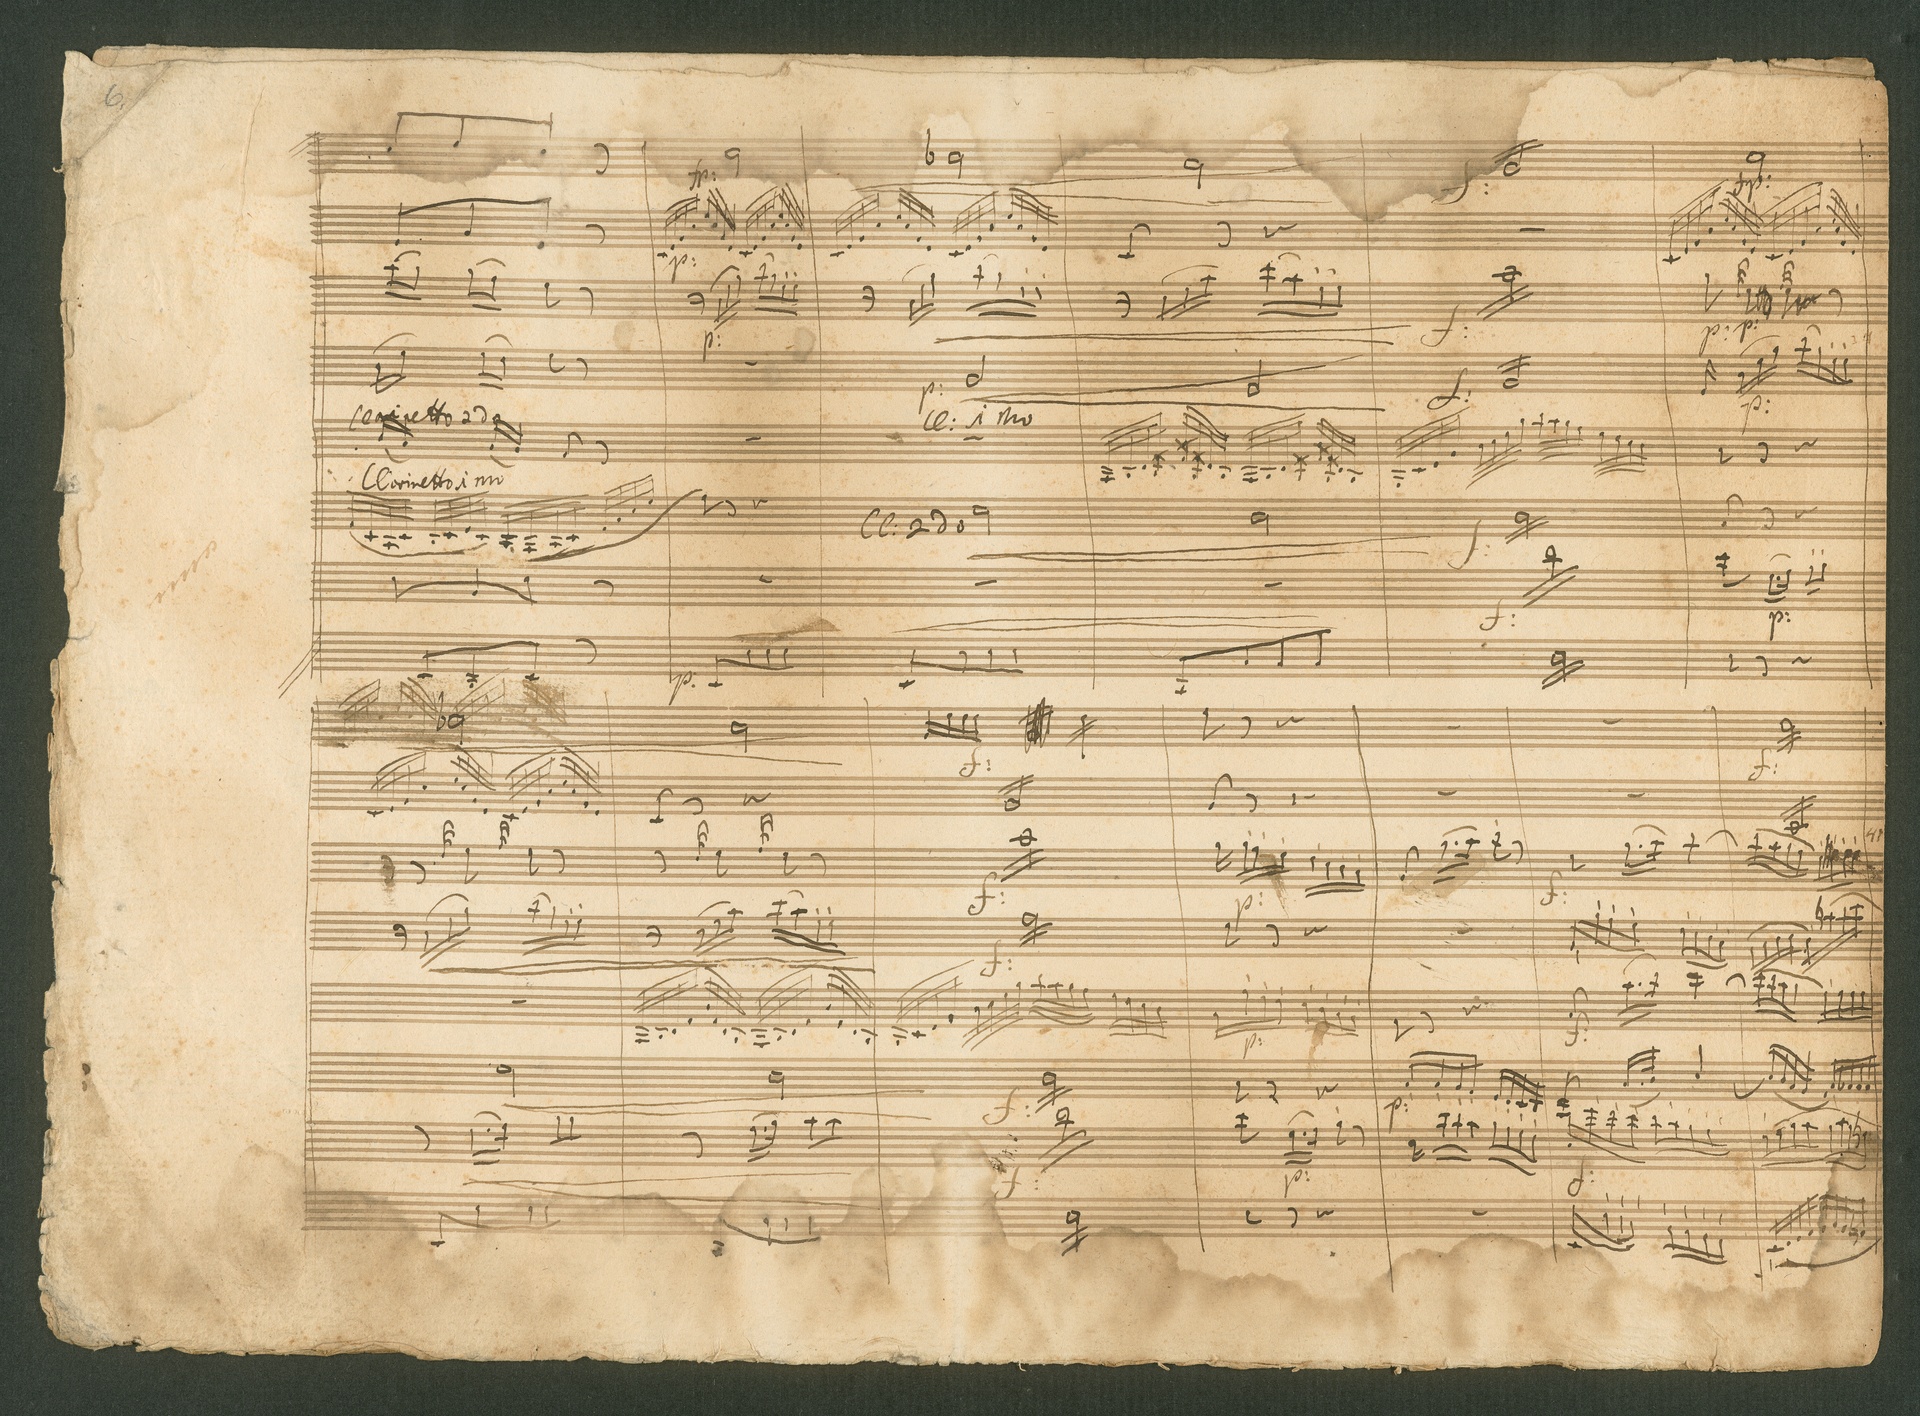 6.
fp:
p:
p:
f:
f:
p:
f:
p:
Clarinetto 2do
Cl: imo
Clarinetto imo
Cl: 2do
f:
f:
p:
p:
f:
f:
f:
p:
f:
f:
p:
f:
f:
p:
f:
p:
f: